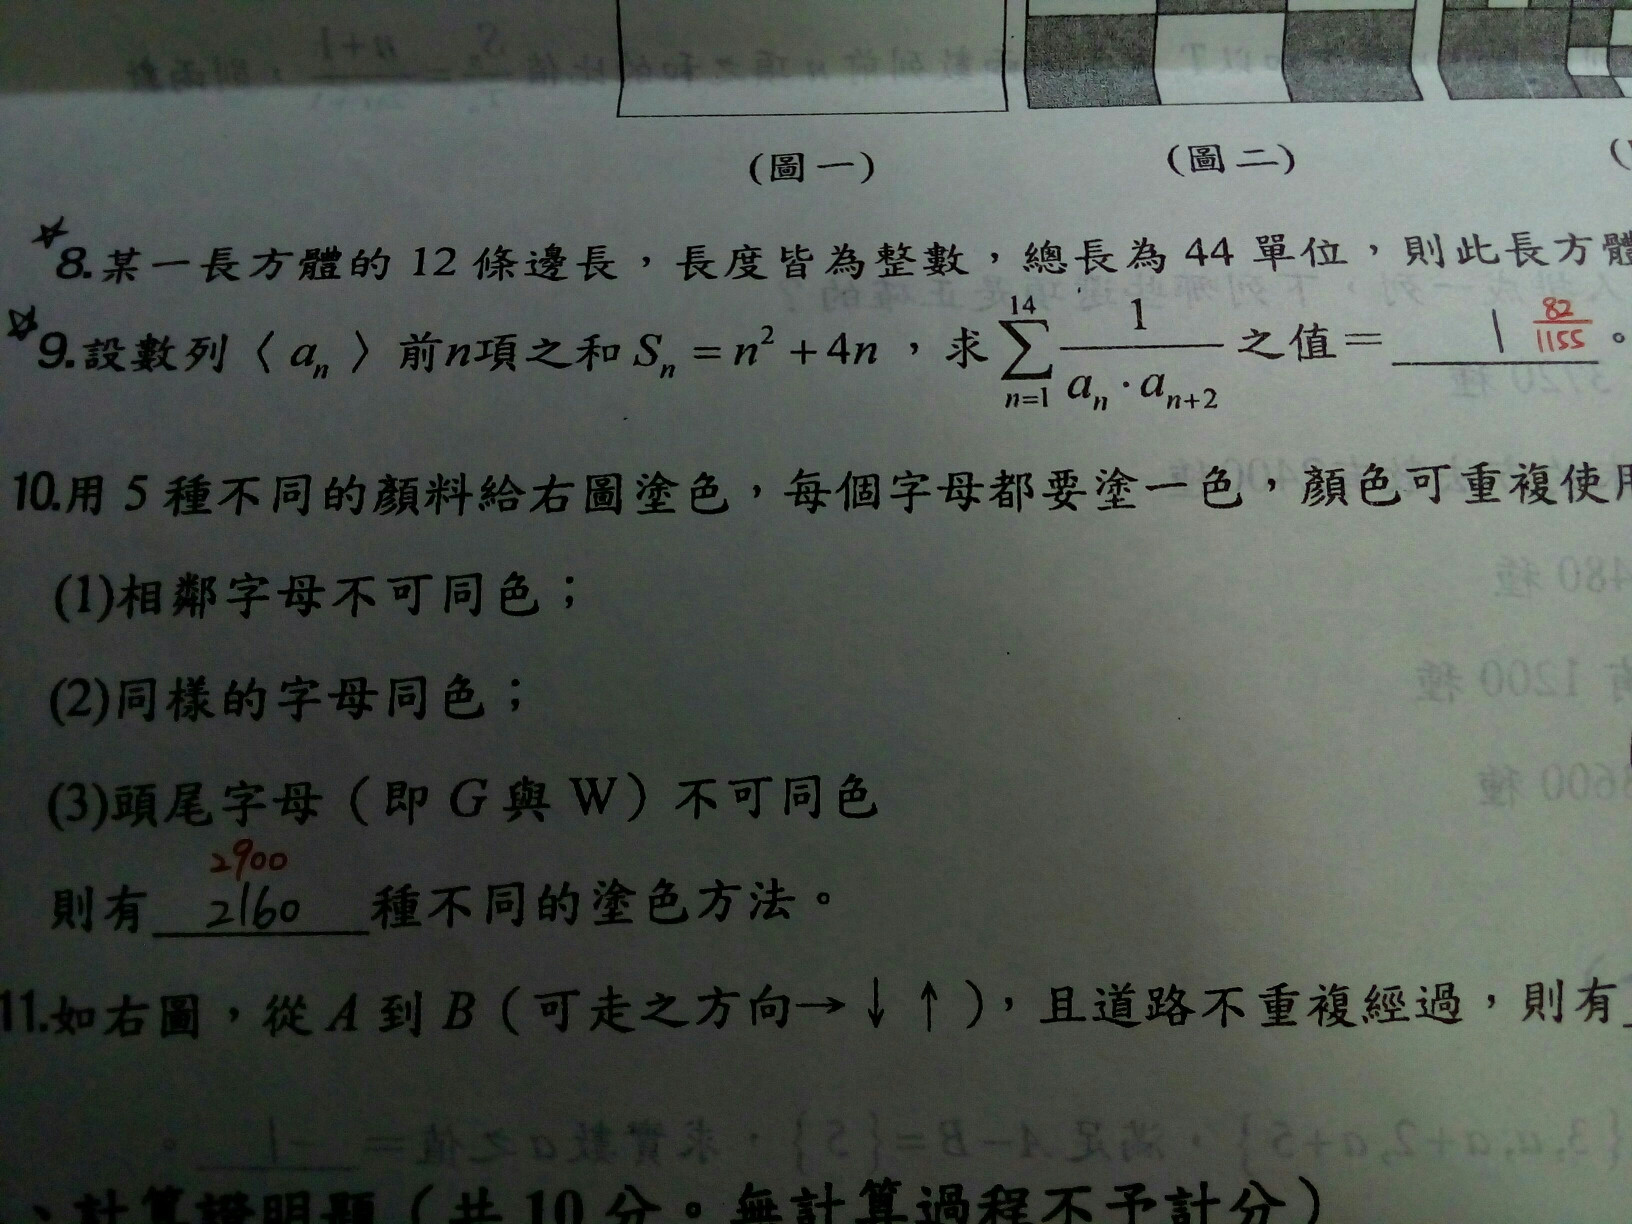 (圖一) (圖二) (
8.某一長方體的 12 條邊長，長度皆為整數，總長為 44 單位，則此長方體
9.設數列〈 aₙ 〉前n項之和 Sₙ = n² + 4n ，求 ∑ₙ₌₁¹⁴ 1/(aₙ · aₙ₊₂) 之值＝ 1 82/1155 。
10.用 5 種不同的顏料給右圖塗色，每個字母都要塗一色，顏色可重複使用
(1)相鄰字母不可同色；
(2)同樣的字母同色；
(3)頭尾字母（即 G 與 W）不可同色
2900
則有 2160 種不同的塗色方法。
11.如右圖，從 A 到 B（可走之方向→ ↓ ↑），且道路不重複經過，則有
、計算證明題（共 10 分。無計算過程不予計分）